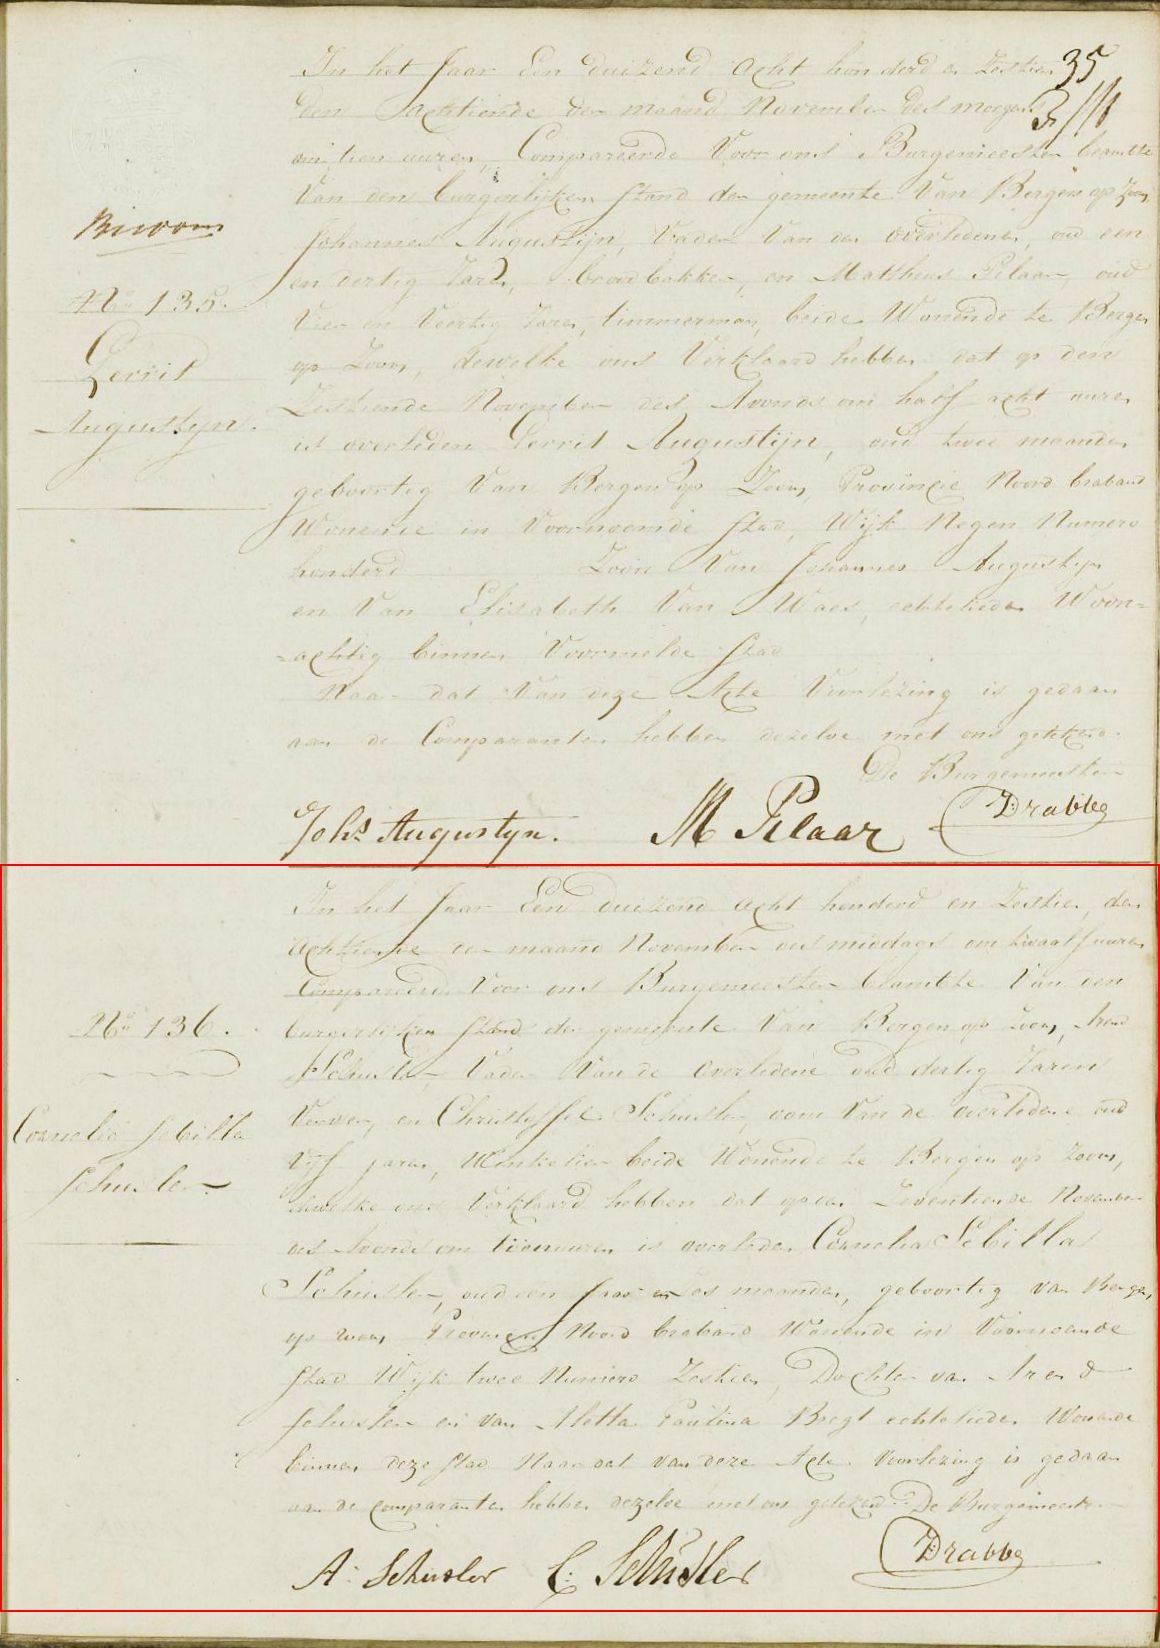 35
In het Jaar Een duizend acht honderd en Zestien
den achttiende der maand November des morgens
om tien uuren, Compareerde Voor ons Burgemeester beambte
Van den burgerlijken Stand der gemeente Van Bergen op Zoom
Johannes Augustijn, Vader Van den overledenen, oud een
en dertig Jaren, broodbakker, en Mattheus Pilaar, oud
Vier en Veertig Jaren, timmerman, beide Wonende te Bergen
op Zoom, dewelke ons Verklaard hebben dat op den
Zestiende November des Avonds om half acht uuren
is overleden Gerrit Augustijn, oud twee maanden
geboortig Van Bergen op Zoom, Provincie Noord braband
Wonende in Voornoemde Stad, Wijk Negen Numero
honderd Zoon Van Johannes Augustijn
en Van Elisabeth Van Waes, echtelieden Woon=
=achtig binnen Voormelde Stad
Naa dat Van deze Acte Voorlezing is gedaan
aan de Comparanten hebben dezelve met ons getekend.
De Burgemeester
Johs Augustyn. M Pilaar Drabbe
No 135.
Gerrit
Augustyn.
In het Jaar Een duizend acht honderd en Zestien, den
achttiende der maand November des middags om twaalf uuren
Compareerde Voor ons Burgemeester beambte Van den
burgerlijken Stand der gemeente Van Bergen op Zoom, Arend
Schusler, Vader Van de overledene oud dertig Jaren
Verwer, en Christoffel Schusler, oom Van de overledene oud
Vijf jaren, Winkelier beide Wonende te Bergen op Zoom,
dewelke ons Verklaard hebben dat op den Zeventiende November
des Avonds om tien uuren is overleden Cornelia Sebilla
Schusler, oud een Jaar en zes maanden, geboortig van Bergen
op zoom Provincie Noord braband Wonende in Voornoemde
Stad Wijk twee Numero Zestien, Dochter van Arend
Schusler en van Aletta Paulina Bregt echtelieden Wonende
binnen deze Stad Naar dat van deze Acte Voorlezing is gedaan
aan de comparanten hebben dezelve met ons getekend. De Burgemeester
A: Schusler C: Schusler Drabbe
No 136.
Cornelia Sebilla
Schusler